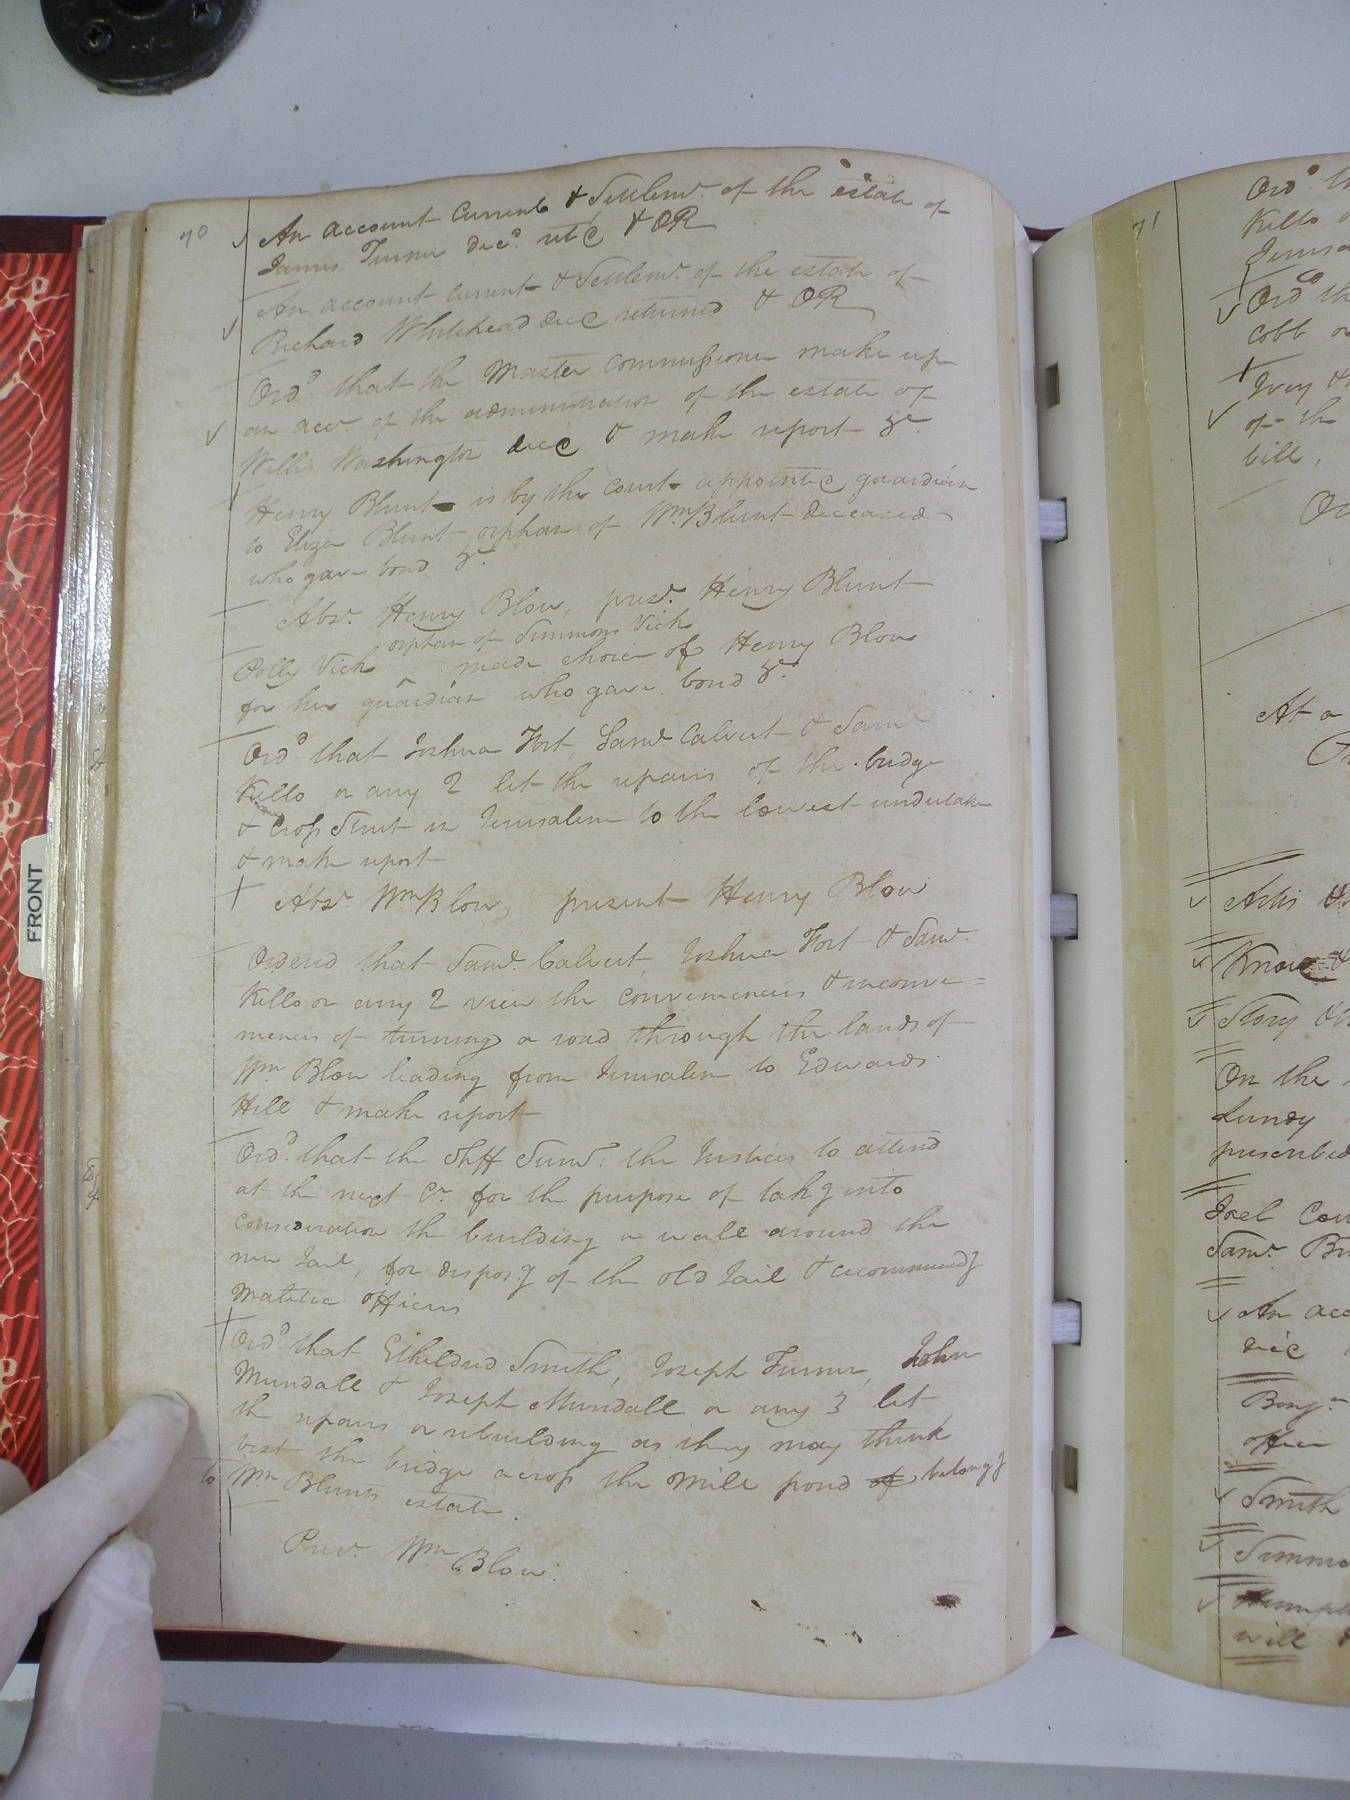 70
An account Current & Settlemt. of the estate of
James Turner decd. retd & OR
An account current & Settlemt. of the estate of
Richard Whitehead decd returned & OR
Ordd that the Master Commissioner make up
an acct. of the administration of the estate of
Willis Washington decd & make report &c.
Henry Blunt is by the court appointed guardian
to Eliza Blunt orphan of Wm Blunt deceased
who gave bond &c.
Abst. Henry Blow, prest. Henry Blunt
orphan of Simmons Vick
Polly Vick ^ made choice of Henry Blow
for her guardian who gave bond &c.
Ordd that Joshua Fort, Saml. Calvert & Saml
Kello or any 2 let the repairs of the bridge
& Cross Street in Jerusalem to the lowest undertaker
& make report
Abst. Wm Blow, present Henry Blow
Ordered that Saml. Calvert, Joshua Fort & Saml.
Kello or any 2 view the conveniencies & inconve=
niencies of turning a road through the lands of
Wm Blow leading from Jerusalem to Edwards
Hill & make report
Ordd. that the Shff Sumd. the Justices to attend
at the next Ct. for the purpose of takg into
consideration the building a wall around the
new Jail, for disposg of the old Jail & recommendg
Militia officers
Ordd that Etheldred Smith, Joseph Turner, John
Mundall & Joseph Mundall or any 3 let
the repairs or rebuilding as they may think
best the bridge across the mill pond of belongg
to Wm Blunts estate.
Prest. Wm Blow.
FRONT
71
Ordd th
Kello o
Jerusa
Ordd th
Cobb
Ivey &
of the
bill,
At a
Artis &
Story
On the
Lundy
prescribed
Joel
Saml.
An acc
decd
Benj.
offic
Smith
Simmo
will